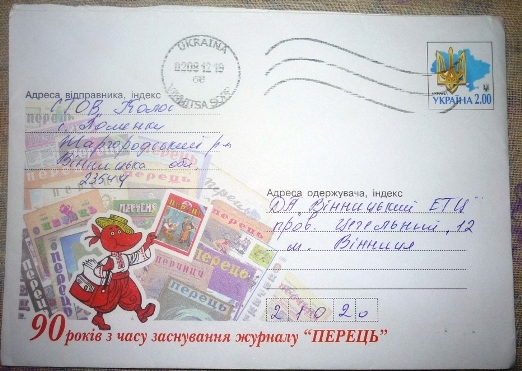 UKRAINA
020812 19
УКРАЇНА 2.00
Адреса відправника, індекс
СТОВ Колос
с.Ломенки
Шаргородський р-н
Вінницька обл.
23544
Адреса одержувача, індекс
ДП "Вінницький ЕТЦ"
пров. Цегельний, 12
м. Вінниця
21020
перець
перець
перець
перець
90 років з часу заснування журналу "ПЕРЕЦЬ"